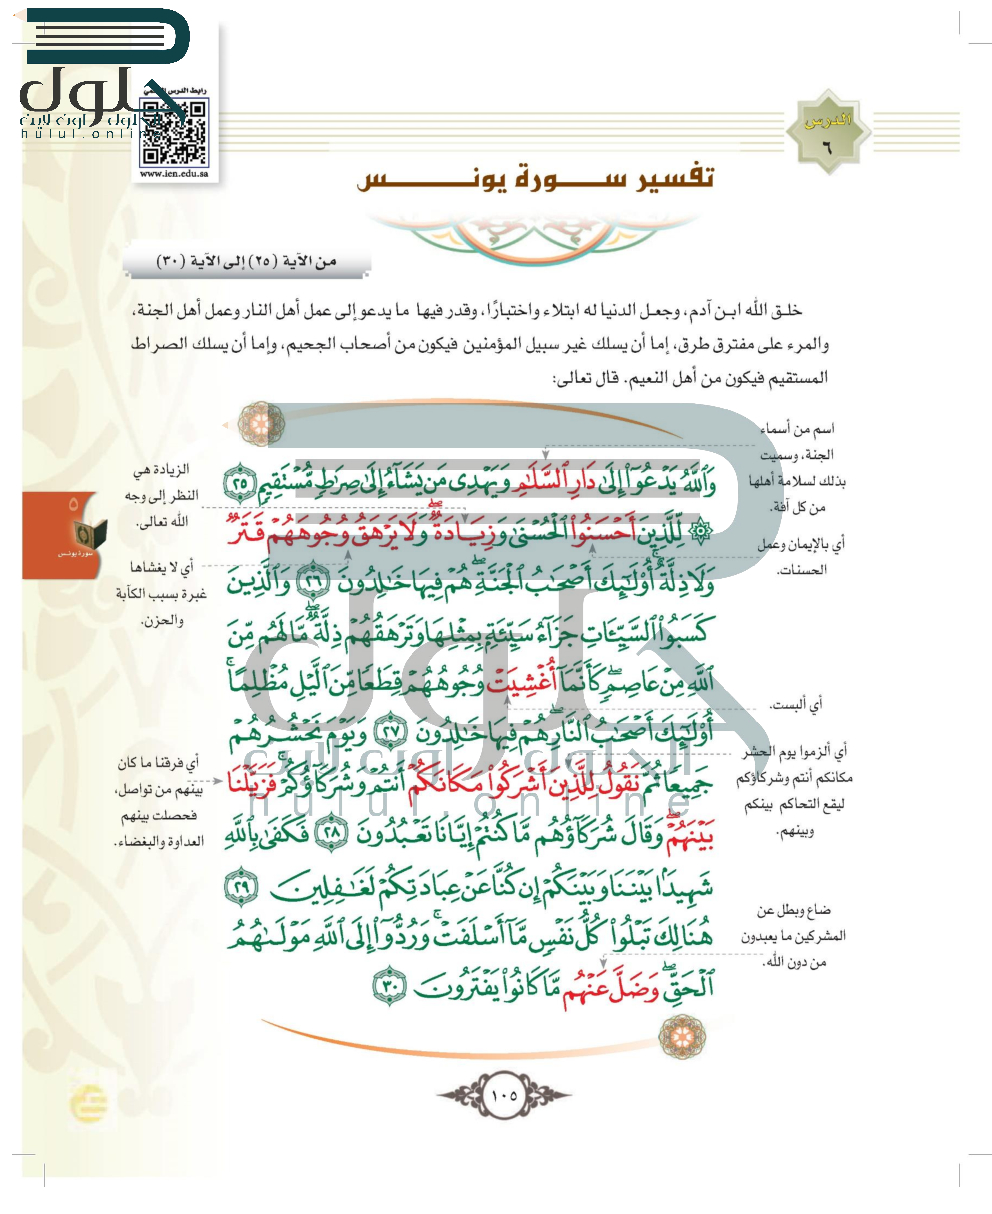 حلول
الحلول اون لاين
hulul.online
رابط الدرس الرقمي
www.ien.edu.sa
الدرس
٦
تفسير سورة يونس
من الآية (٢٥) إلى الآية (٣٠)
خلق الله ابن آدم، وجعل الدنيا له ابتلاء واختبارًا، وقدر فيها ما يدعو إلى عمل أهل النار وعمل أهل الجنة،
والمرء على مفترق طرق، إما أن يسلك غير سبيل المؤمنين فيكون من أصحاب الجحيم، وإما أن يسلك الصراط
المستقيم فيكون من أهل النعيم. قال تعالى:
اسم من أسماء
الجنة، وسميت
بذلك لسلامة أهلها
من كل آفة.
أي بالإيمان وعمل
الحسنات.
أي ألبست.
أي ألزموا يوم الحشر
مكانكم أنتم وشركاؤكم
ليقع التحاكم بينكم
وبينهم.
ضاع وبطل عن
المشركين ما يعبدون
من دون الله.
وَٱللَّهُ يَدْعُوٓاْ إِلَىٰ دَارِ ٱلسَّلَٰمِ وَيَهْدِى مَن يَشَآءُ إِلَىٰ صِرَٰطٍ مُّسْتَقِيمٍ ٢٥
۞ لِّلَّذِينَ أَحْسَنُواْ ٱلْحُسْنَىٰ وَزِيَادَةٌ ۖ وَلَا يَرْهَقُ وُجُوهَهُمْ قَتَرٌ
وَلَا ذِلَّةٌ ۚ أُوْلَٰٓئِكَ أَصْحَٰبُ ٱلْجَنَّةِ ۖ هُمْ فِيهَا خَٰلِدُونَ ٢٦ وَٱلَّذِينَ
كَسَبُواْ ٱلسَّيِّـَٔاتِ جَزَآءُ سَيِّئَةٍۭ بِمِثْلِهَا وَتَرْهَقُهُمْ ذِلَّةٌ ۖ مَّا لَهُم مِّنَ
ٱللَّهِ مِنْ عَاصِمٍ ۖ كَأَنَّمَآ أُغْشِيَتْ وُجُوهُهُمْ قِطَعًا مِّنَ ٱلَّيْلِ مُظْلِمًا ۚ
أُوْلَٰٓئِكَ أَصْحَٰبُ ٱلنَّارِ ۖ هُمْ فِيهَا خَٰلِدُونَ ٢٧ وَيَوْمَ نَحْشُرُهُمْ
جَمِيعًا ثُمَّ نَقُولُ لِلَّذِينَ أَشْرَكُواْ مَكَانَكُمْ أَنتُمْ وَشُرَكَآؤُكُمْ ۚ فَزَيَّلْنَا
بَيْنَهُمْ ۖ وَقَالَ شُرَكَآؤُهُم مَّا كُنتُمْ إِيَّانَا تَعْبُدُونَ ٢٨ فَكَفَىٰ بِٱللَّهِ
شَهِيدًۢا بَيْنَنَا وَبَيْنَكُمْ إِن كُنَّا عَنْ عِبَادَتِكُمْ لَغَٰفِلِينَ ٢٩
هُنَالِكَ تَبْلُواْ كُلُّ نَفْسٍ مَّآ أَسْلَفَتْ ۚ وَرُدُّوٓاْ إِلَى ٱللَّهِ مَوْلَىٰهُمُ
ٱلْحَقِّ ۖ وَضَلَّ عَنْهُم مَّا كَانُواْ يَفْتَرُونَ ٣٠
الزيادة هي
النظر إلى وجه
الله تعالى.
أي لا يغشاها
غبرة بسبب الكآبة
والحزن.
أي فرقنا ما كان
بينهم من تواصل،
فحصلت بينهم
العداوة والبغضاء.
٥
سورة يونس
حلول
الحلول اون لاين
hulul.online
١٠٥